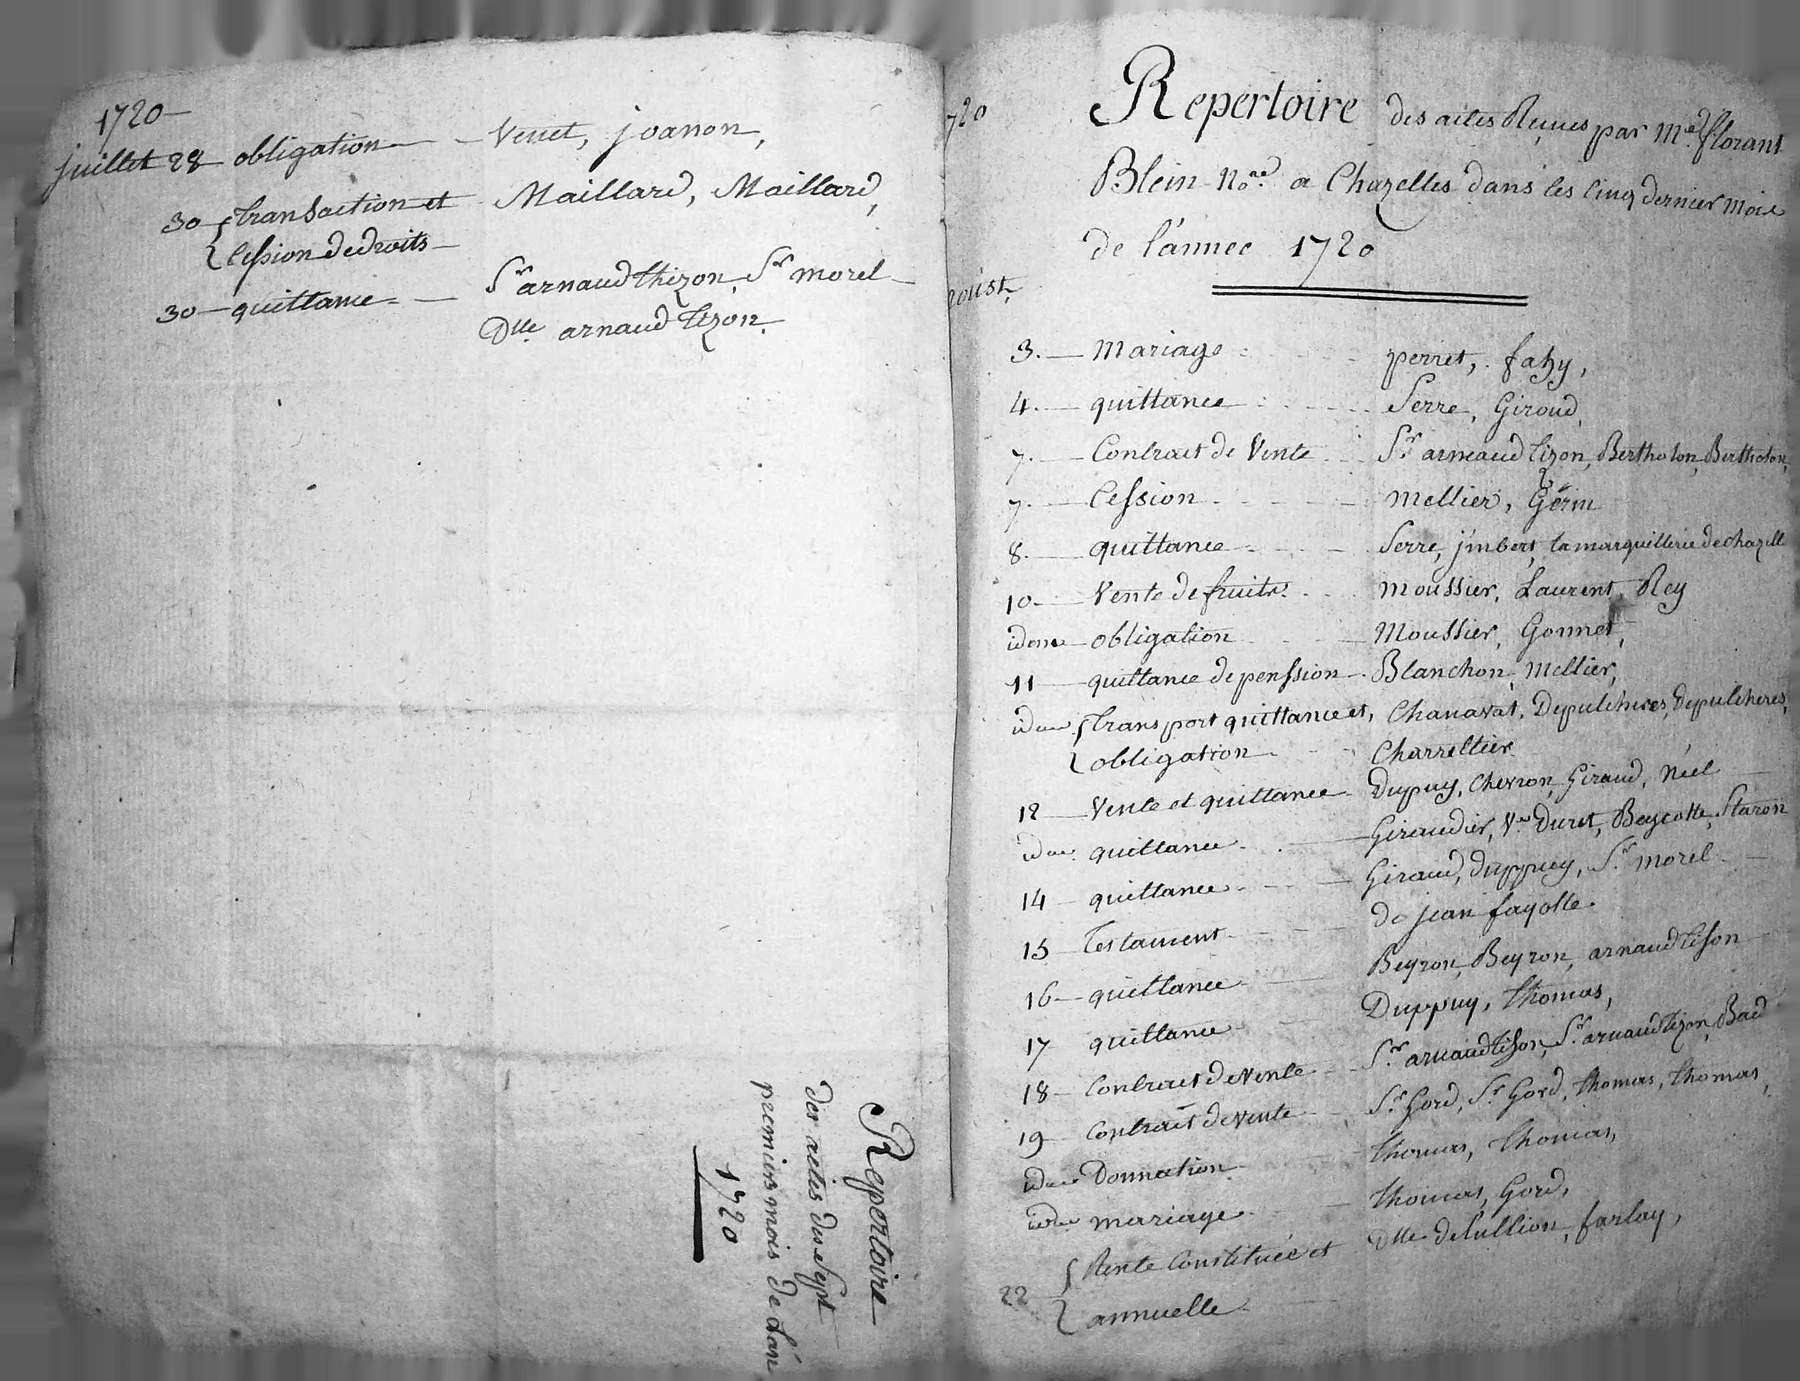 1720
juillet 28 obligation Venet, joanon,
30 transaction et Maillard, Maillard,
Cession de droits
30 quittance Sr arnaud thizon, Sr morel
Dlle arnaud tizon.
Repertoire
des actes des Sept
premiers mois de L'an
1720
720
Repertoire des actes Reçues par Me florant
Blein Nore a Chazelles dans les cinq dernier mois
de l'année 1720
3. Mariage perret, fahy,
4. quittance Serre, Giroud,
7. Contract de Vente Sr arneaud tizon, Bertholon, Bertholon,
7. Cession mellier, Gerin
8. quittance Serre, jmbert, la marquillerie de chazelle
10 Vente de fruits moussier, Laurent, Rey
idem obligation Moussier, Gonnet,
11 quittance de penssion Blanchon, Mellier,
idem transport quittance et, Chanavat, Depulcheres, Depulcheres,
obligation Charreltier
12 Vente et quittance Dupuy, Chevron, Giraud, néel
idem quittance Giraudier, Ve Duret, Beycotte, Staron
14 quittance Giraud, duppuy, Sr morel
15 Testament de jean fayolle.
16 quittance Beyron, Beyron, arnaud tison
17 quittance Duppuy, thomas,
18 Contract de Vente Sr arnaud tison, Sr arnaud tizon, Bad
19 Contract de vente Sr Gord, Sr Gord, thomas, thomas,
idem Donnation thomas, thomas,
idem mariage thomas, Gord,
22 Rente Constituée et Dlle de farlay,
annuelle